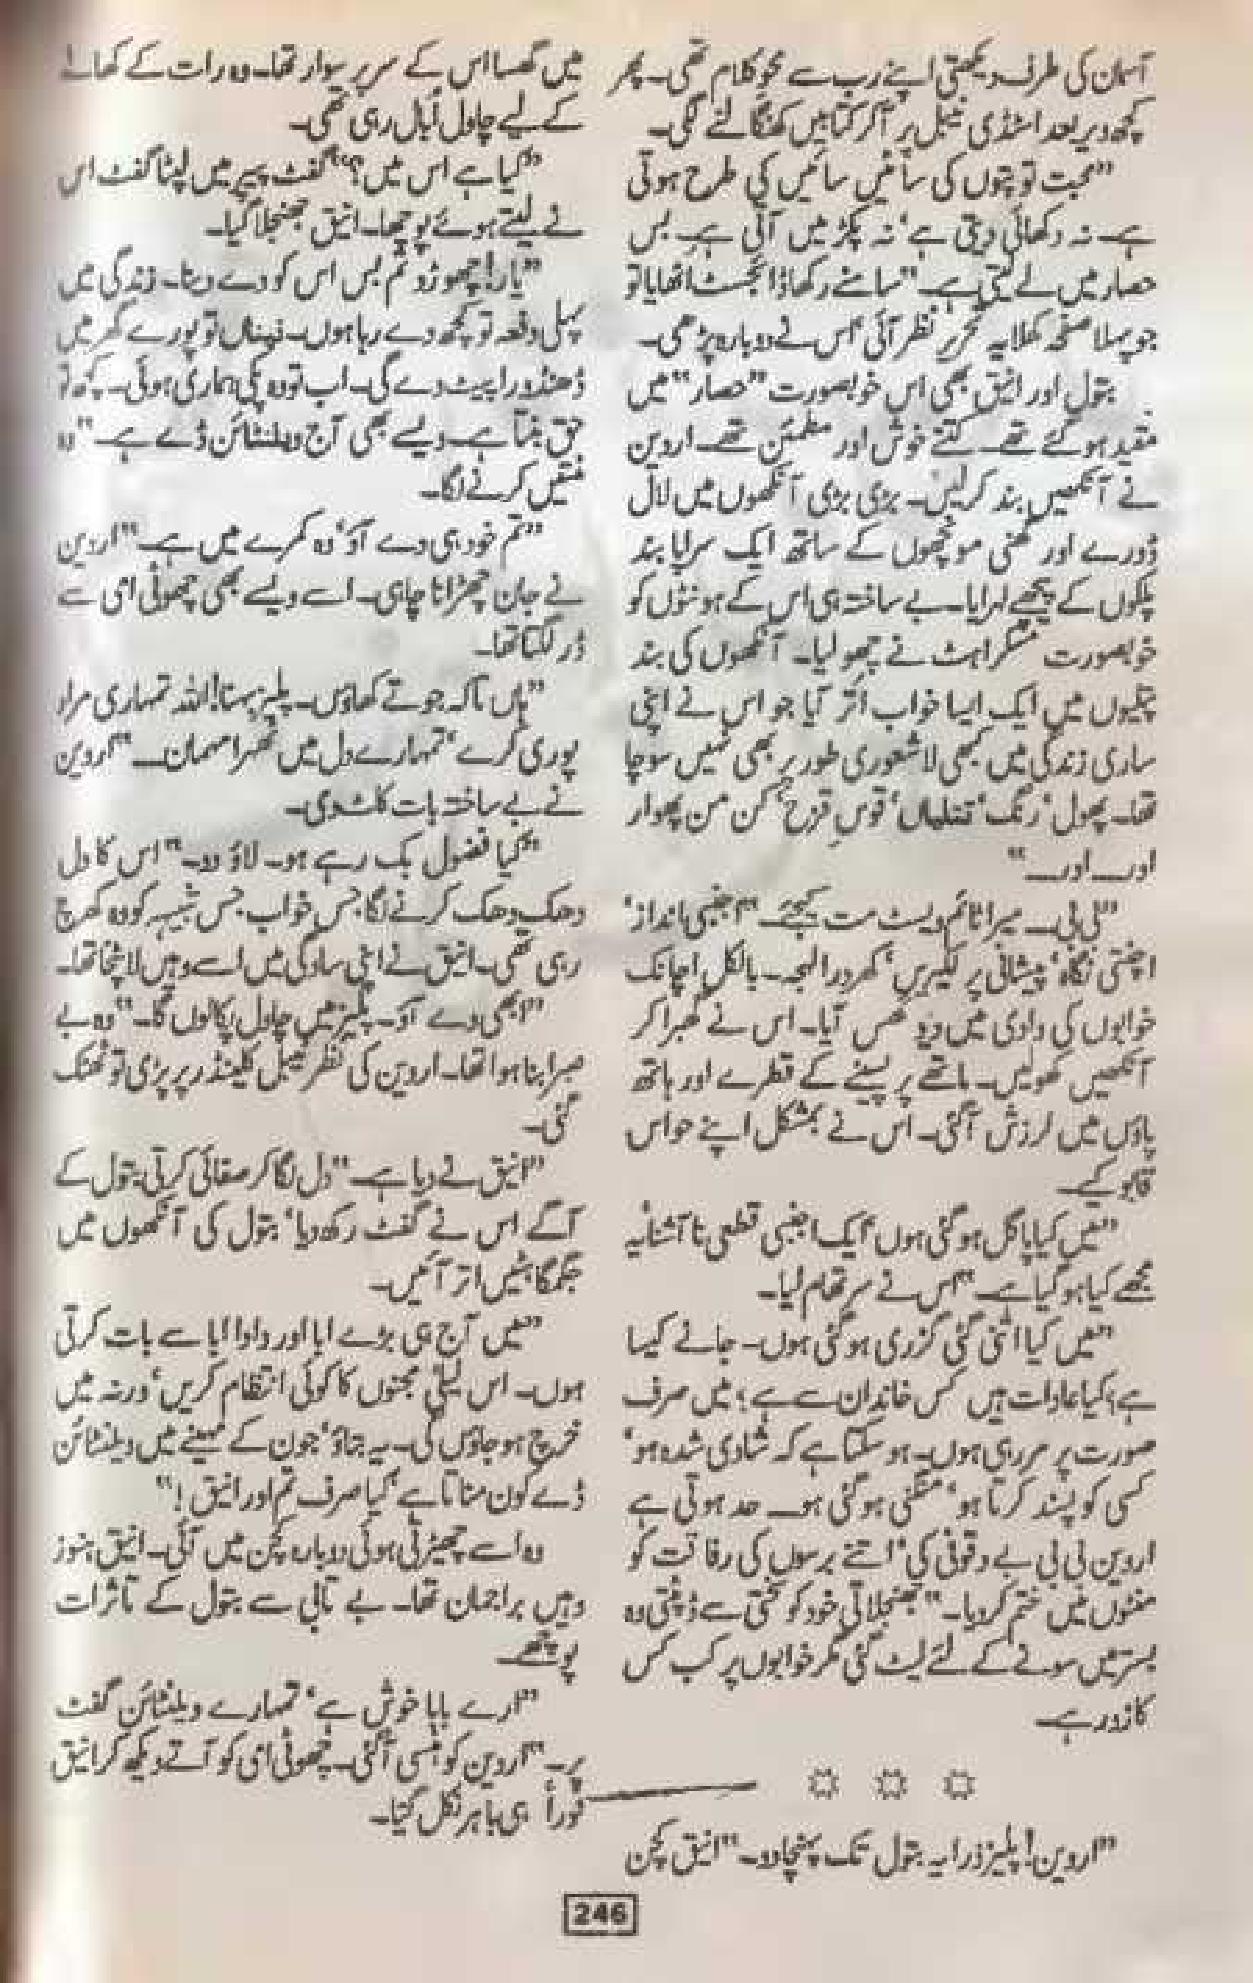 آسمان کی طرف دیکھتی اپنے رب سے محوِ کلام تھی۔ پھر
کچھ دیر بعد اسٹڈی ٹیبل پر آکر کتابیں کھنگالنے لگی۔
”محبت تو پتوں کی سائیں سائیں کی طرح ہوتی
ہے۔ نہ دکھائی دیتی ہے‘ نہ پکڑ میں آتی ہے۔ بس
حصار میں لے لیتی ہے۔“ سامنے رکھا ڈائجسٹ اٹھایا تو
جو پہلا صفحہ کھلا یہ تحریر نظر آئی اس نے دوبارہ پڑھی۔
بتول اور انیق بھی اس خوبصورت ”حصار“ میں
مقید ہوگئے تھے۔ کتنے خوش اور مطمئن تھے۔ اروین
نے آنکھیں بند کرلیں۔ بڑی بڑی آنکھوں میں لال
ڈورے اور گھنی مونچھوں کے ساتھ ایک سراپا بند
پلکوں کے پیچھے لہرایا۔ بے ساختہ ہی اس کے ہونٹوں کو
خوبصورت مسکراہٹ نے چھولیا۔ آنکھوں کی بند
پتلیوں میں ایک ایسا خواب اتر آیا جو اس نے اپنی
ساری زندگی میں کبھی لاشعوری طور پر بھی نہیں سوچا
تھا۔ پھول‘ رنگ‘ تتلیاں‘ قوس قزح‘ کن من پھوار
اور۔۔ اور۔۔“
”بی بی۔۔ میرا ٹائم ویسٹ مت کیجئے۔“ اجنبی انداز‘
اچٹتی نگاہ‘ پیشانی پر لکیریں‘ کھردرا لہجہ۔ بالکل اچانک
خوابوں کی وادی میں وہ گھس آیا۔ اس نے گھبرا کر
آنکھیں کھولیں۔ ماتھے پر پسینے کے قطرے اور ہاتھ
پاؤں میں لرزش آگئی۔ اس نے بمشکل اپنے حواس
قابو کیے۔
”میں کیا پاگل ہوگئی ہوں ایک اجنبی قطعی ناآشنا یہ
مجھے کیا ہوگیا ہے۔“ اس نے سر تھام لیا۔
”میں کیا اتنی گئی گزری ہوگئی ہوں۔ جانے کیسا
ہے؟ کیا عادات ہیں کس خاندان سے ہے؟ میں صرف
صورت پر مر رہی ہوں۔ ہوسکتا ہے کہ شادی شدہ ہو‘
کسی کو پسند کرتا ہو‘ منگنی ہوگئی ہو۔ حد ہوتی ہے
اروین بی بی بے وقوفی کی‘ اتنے برسوں کی رفاقت کو
منٹوں میں ختم کردیا۔“ جھنجلاتی خود کو سختی سے ڈپٹتی وہ
بستر میں سونے کے لئے لیٹ گئی مگر خوابوں پر کب کس
کا زور ہے۔
”اروین! پلیز ذرا یہ بتول تک پہنچا دو۔“ انیق کچن
میں گھسا اس کے سر پر سوار تھا۔ وہ رات کے کھانے
کے لیے چاول اُبال رہی تھی۔
”کیا ہے اس میں؟“ گفٹ پیپر میں لپٹا گفٹ اس
نے لیتے ہوئے پوچھا۔ انیق جھنجلا گیا۔
”یار! چھوڑو تم بس اس کو دے دینا۔ زندگی میں
پہلی دفعہ تو کچھ دے رہا ہوں۔ نہناں تو پورے گھر میں
ڈھنڈورا پیٹ دے گی۔ اب تو وہ پکی ہماری ہوئی۔ کچھ تو
حق بنتا ہے۔ ویسے بھی آج ویلنٹائن ڈے ہے۔“ وہ
منتیں کرنے لگا۔
”تم خود ہی دے آؤ‘ وہ کمرے میں ہے۔“ اروین
نے جان چھڑانا چاہی۔ اسے ویسے بھی چھوٹی امی سے
ڈر لگتا تھا۔
”ہاں تاکہ جوتے کھاؤں۔ پلیز بہنا! اللہ تمہاری مراد
پوری کرے‘ تمہارے دل میں ٹھہرا مہمان۔۔“ اروین
نے بے ساختہ بات کاٹ دی۔
”کیا فضول بک رہے ہو۔ لاؤ دو۔“ اس کا دل
دھک دھک کرنے لگا جس خواب جس شبیہہ کو وہ کھرچ
رہی تھی۔ انیق نے اپنی سادگی میں اسے وہیں لا پٹخا تھا۔
”ابھی دے آؤ۔ پلیز میں چاول پکالوں گا۔“ وہ بے
صبرا بنا ہوا تھا۔ اروین کی نظر ٹیبل کلینڈر پر پڑی تو ٹھٹک
گئی۔
”انیق نے دیا ہے۔“ دل لگا کر صفائی کرتی بتول کے
آگے اس نے گفٹ رکھ دیا‘ بتول کی آنکھوں میں
جگمگاہٹیں اتر آئیں۔
”میں آج ہی بڑے ابا اور دادا ابا سے بات کرتی
ہوں۔ اس لیلیٰ مجنوں کا کوئی انتظام کریں‘ ورنہ میں
خرچ ہو جاؤں گی۔ یہ بتاؤ‘ جون کے مہینے میں ویلنٹائن
ڈے کون مناتا ہے‘ کیا صرف تم اور انیق!“
وہ اسے چھیڑتی ہوئی دوبارہ کچن میں آئی۔ انیق ہنوز
وہیں براجمان تھا۔ بے تابی سے بتول کے تاثرات
پوچھے۔
”ارے بابا خوش ہے‘ تمہارے ویلنٹائن گفٹ
پر۔“ اروین کو ہنسی آگئی۔ چھوٹی امی کو آتے دیکھ کر انیق
فوراً ہی باہر نکل گیا۔
246